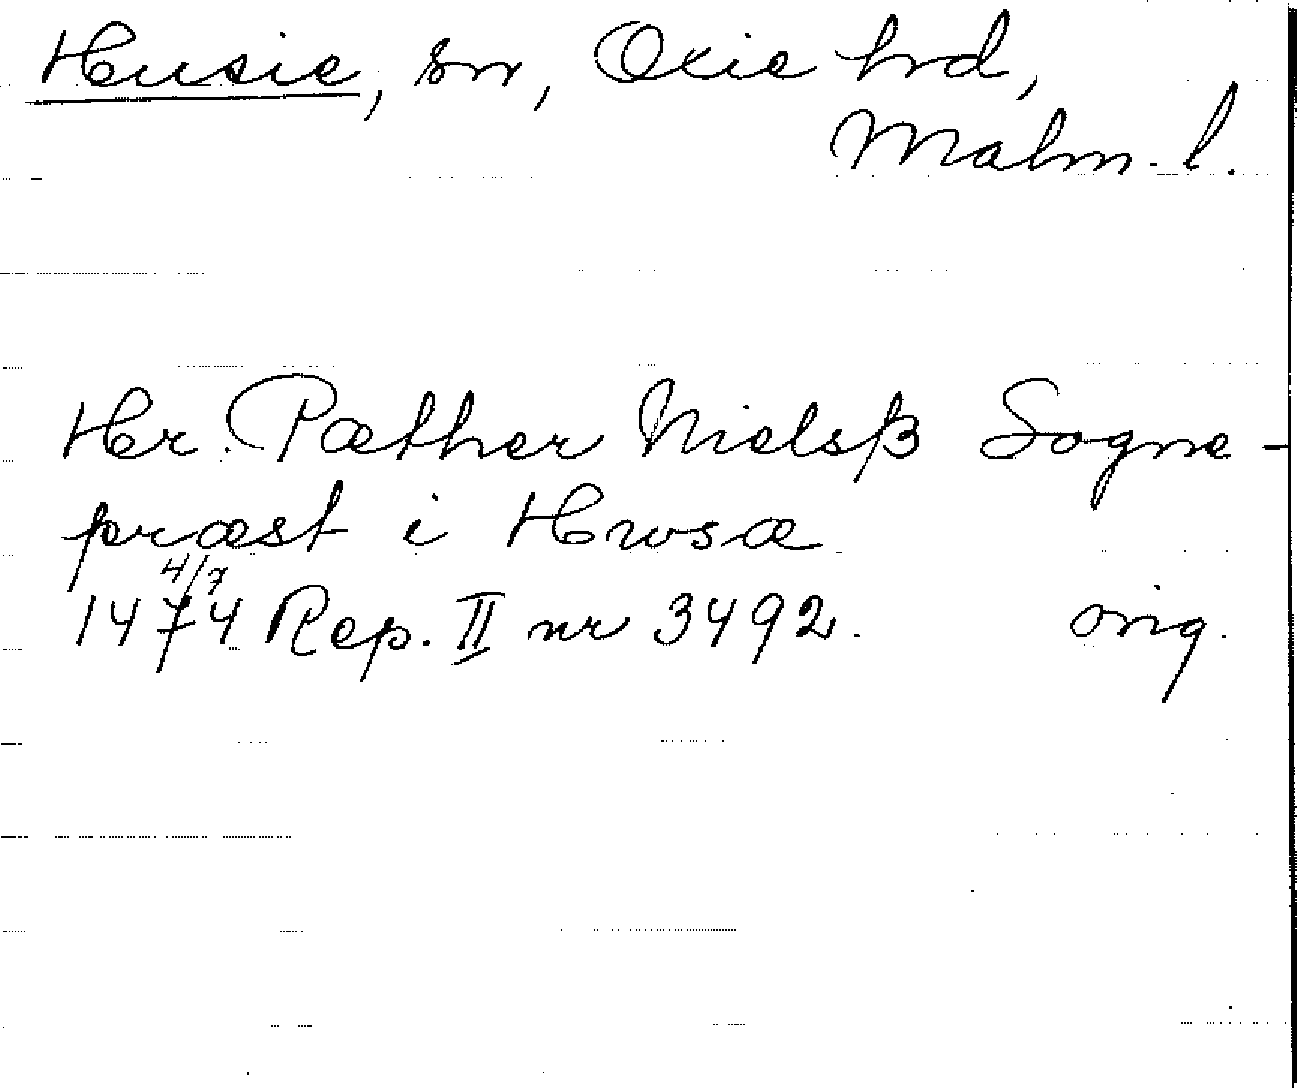 Husie, sn, Oxie hrd,
Malm. l.
Her Pæther Nielsβ Sogne-
præst i Hwsæ
4/7
1474 Rep. II nr 3492. orig.